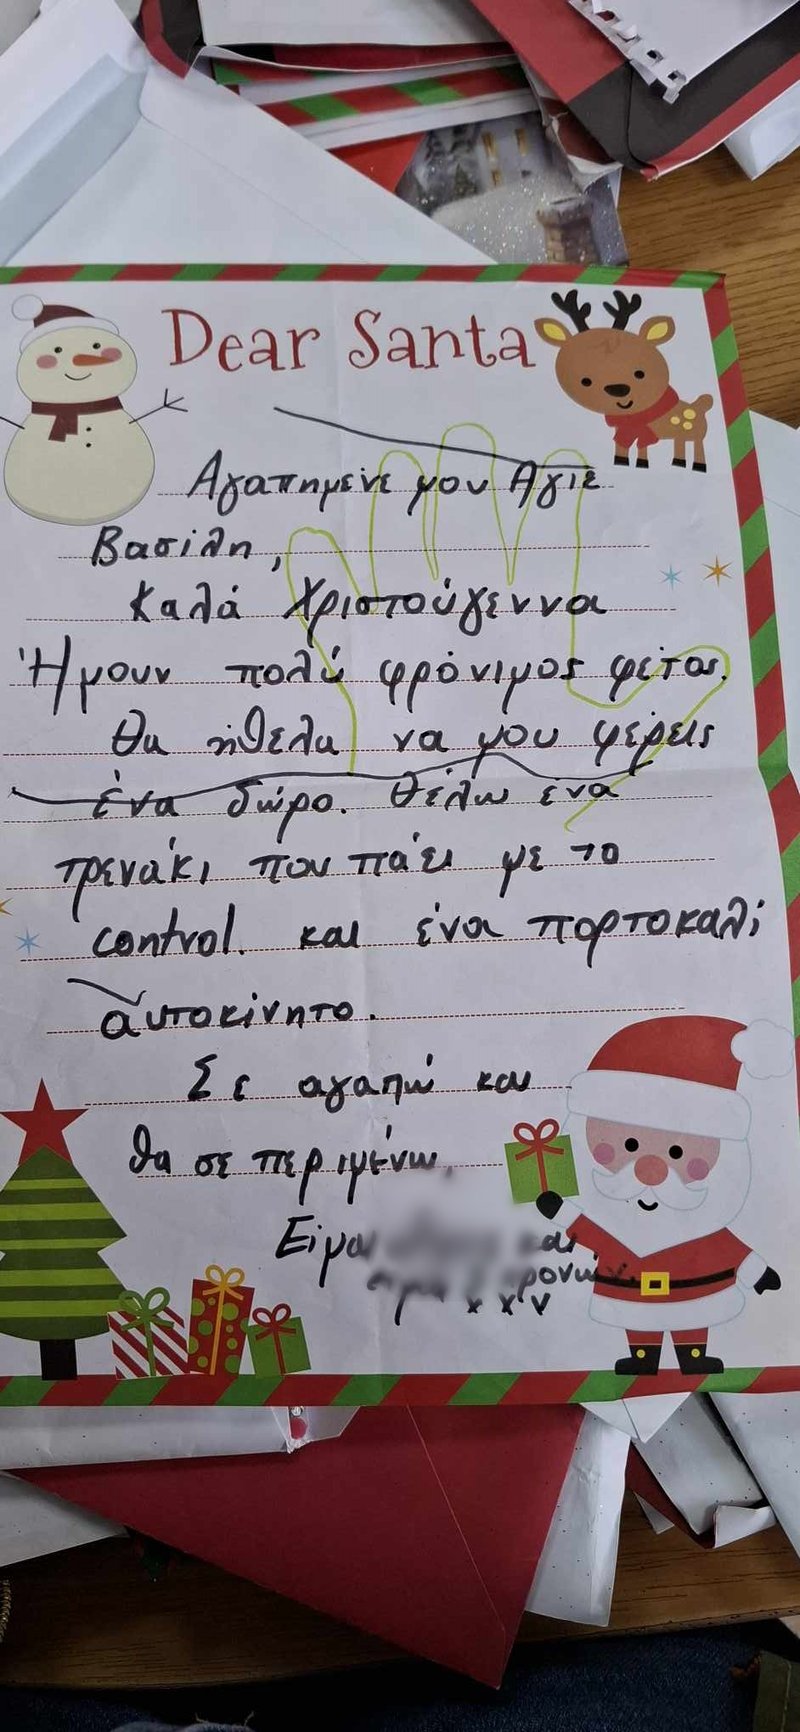 Dear Santa
Αγαπημενε μου Αγιε
Βασιλη,
Καλά Χριστούγεννα
Ήμουν πολύ φρόνιμος φέτος.
Θα ήθελα να μου φέρεις
ένα δώρο. Θέλω ένα
τρενάκι που πάει με το
control. και ένα πορτοκαλί
αυτοκίνητο.
Σε αγαπώ και
θα σε περιμένω.
Είμαι και
χρονών.
x x v